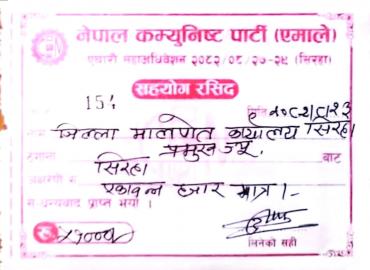 नेपाल कम्युनिष्ट पार्टी (एमाले)
एघारौं महाअधिवेशन २०८२/०८/२७-२९ (सिरहा)
सहयोग रसिद
151
मिति २०८२/८/२३
जिल्ला मालपोत कार्यालय सिरहा
प्रमुख ज्यू
बाट
सिरहा
एकाउन्न हजार मात्र।-
सधन्यवाद प्राप्त भयो ।
रु. ५१०००/
लिनेको सही